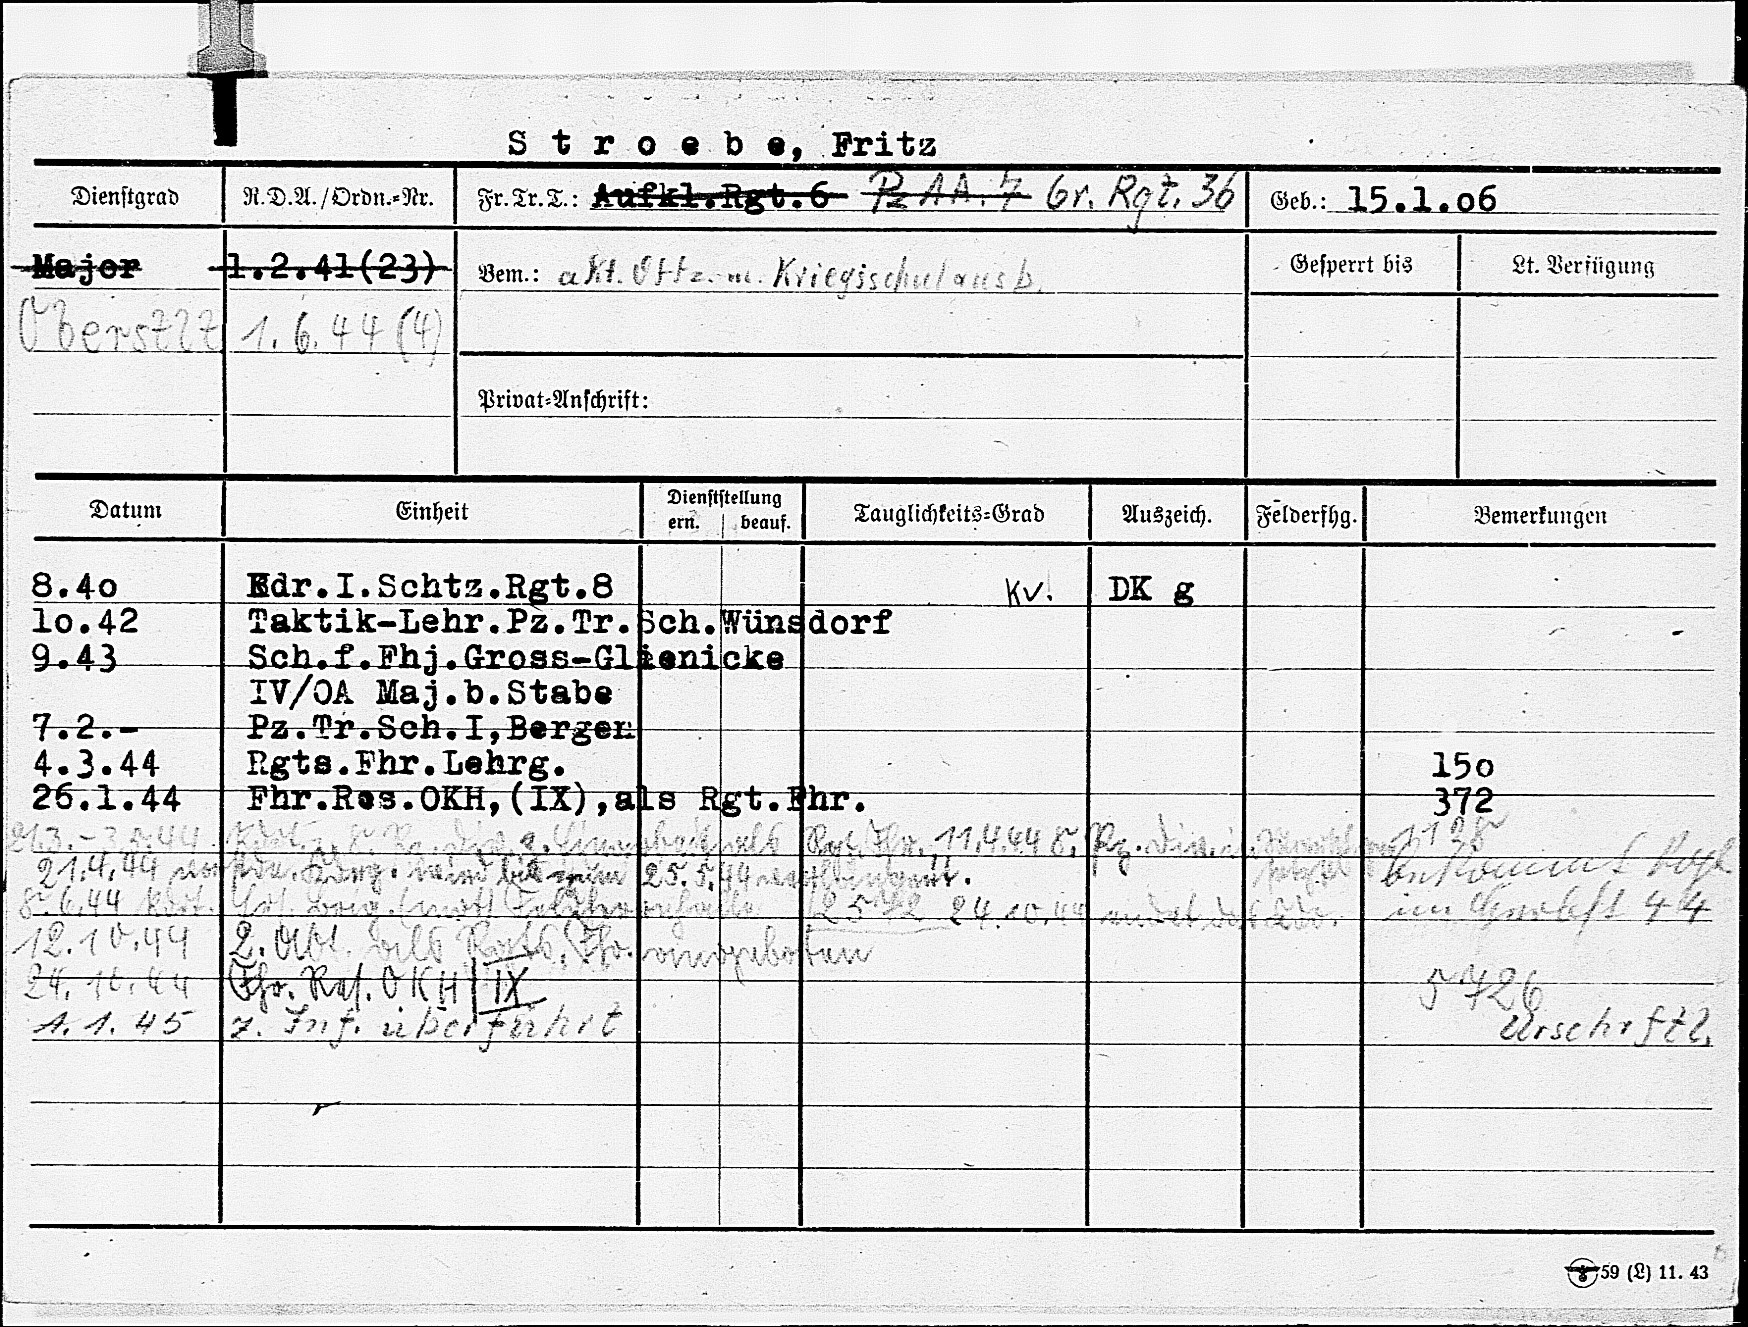 Stroebe, Fritz
Dienstgrad R.D.A./Ordn.-Nr. Fr.Tr.T.: Aufkl.Rgt.6 Pz AA. 7 Gr. Rgt. 36 Geb.: 15.1.o6
Major 1.2.41(23) Bem.: akt. Offz. m. Kriegsschulausb. Gesperrt bis Lt. Verfügung
Oberstlt 1.6.44 (4)
Privat-Anschrift:
Datum Einheit Dienststellung Tauglichkeits-Grad Auszeich. Felderfhg. Bemerkungen
ern. beauf.
8.4o Kdr.I.Schtz.Rgt.8 kv. DK g
1o.42 Taktik-Lehr.Pz.Tr.Sch.Wünsdorf
9.43 Sch.f.Fhj.Gross-Glienicke
IV/OA Maj.b.Stabe
7.2.- Pz.Tr.Sch.I,Bergen
4.3.44 Rgts.Fhr.Lehrg. 15o
26.1.44 Fhr.Res.OKH,(IX),als Rgt.Fhr. 372
als Rgt. Fhr. 11.4.44 8. Pz. Div.
21.4.44 wird bis zum 25.5.44 verlängert.
8.6.44 Kdt. 2572 24.10.44 44
12.10.44 2. Abt. als Rgts. Fhr. angeboten
24.10.44 Fhr. Res. OKH IX 5726
1.1.45 z. Inf. überführt Urschrftl.
59 (L) 11. 43